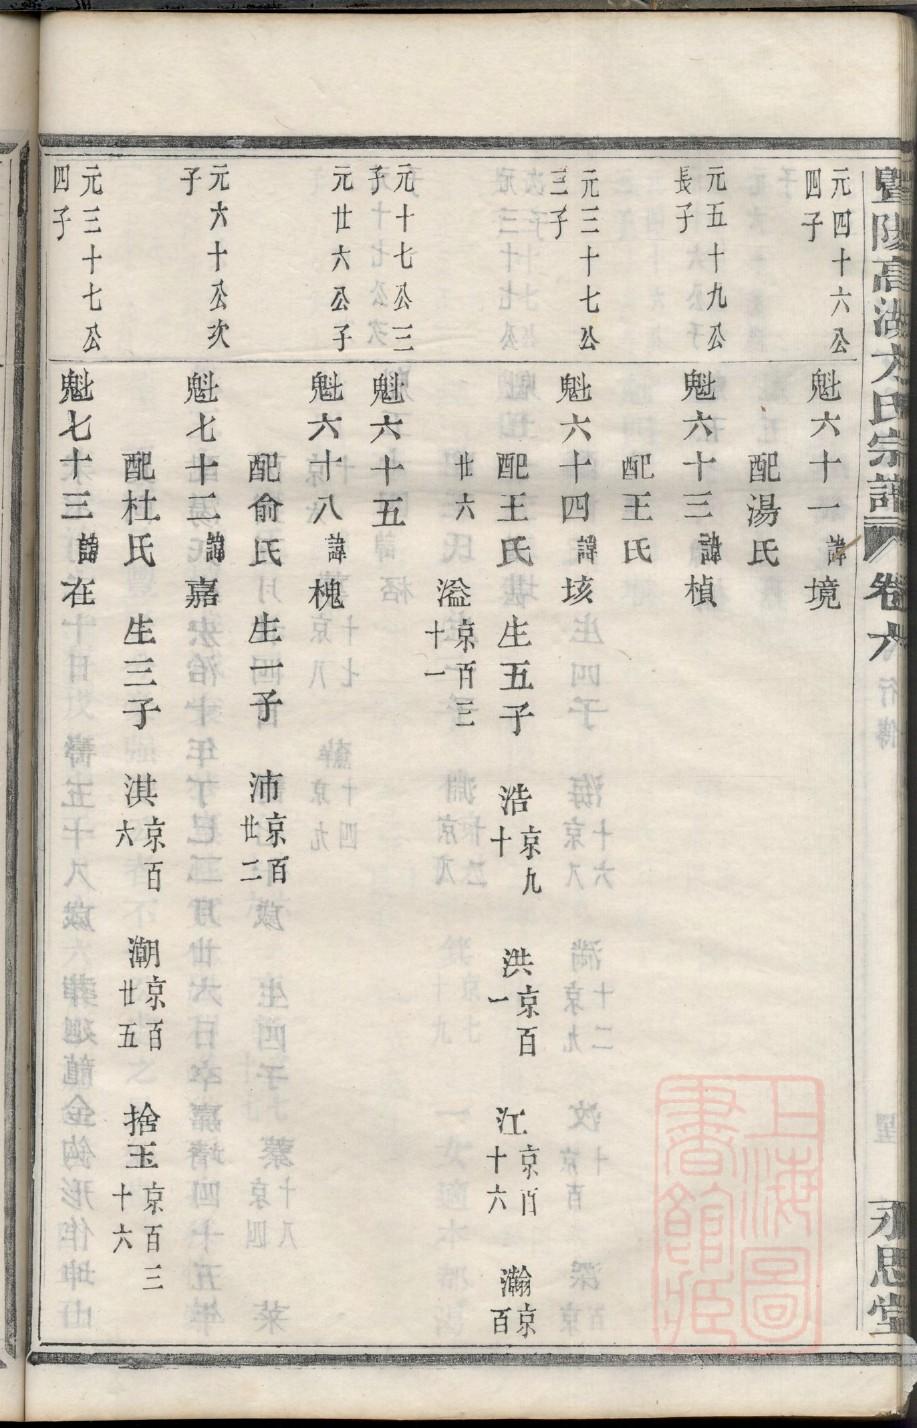 暨陽高湖方氏宗譜 卷六 永思堂
元四十六公
四子
魁六十一 諱境
配湯氏
元五十九公
長子
魁六十三 諱楨
配王氏
元三十七公
三子
魁六十四 諱垓
配王氏 生五子 浩京九十 洪京百一 江京百十六 瀚京百
廿六 溢京百三十一
元十七公三
子
魁六十五
元廿六公子
魁六十八 諱槐
配俞氏 生一子 沛京百廿二
元六十公次
子
魁七十二 諱嘉
配杜氏 生三子 淇京百六 潮京百廿五 捨玉京百三十六
元三十七公
四子
魁七十三 諱在
上海圖書館藏